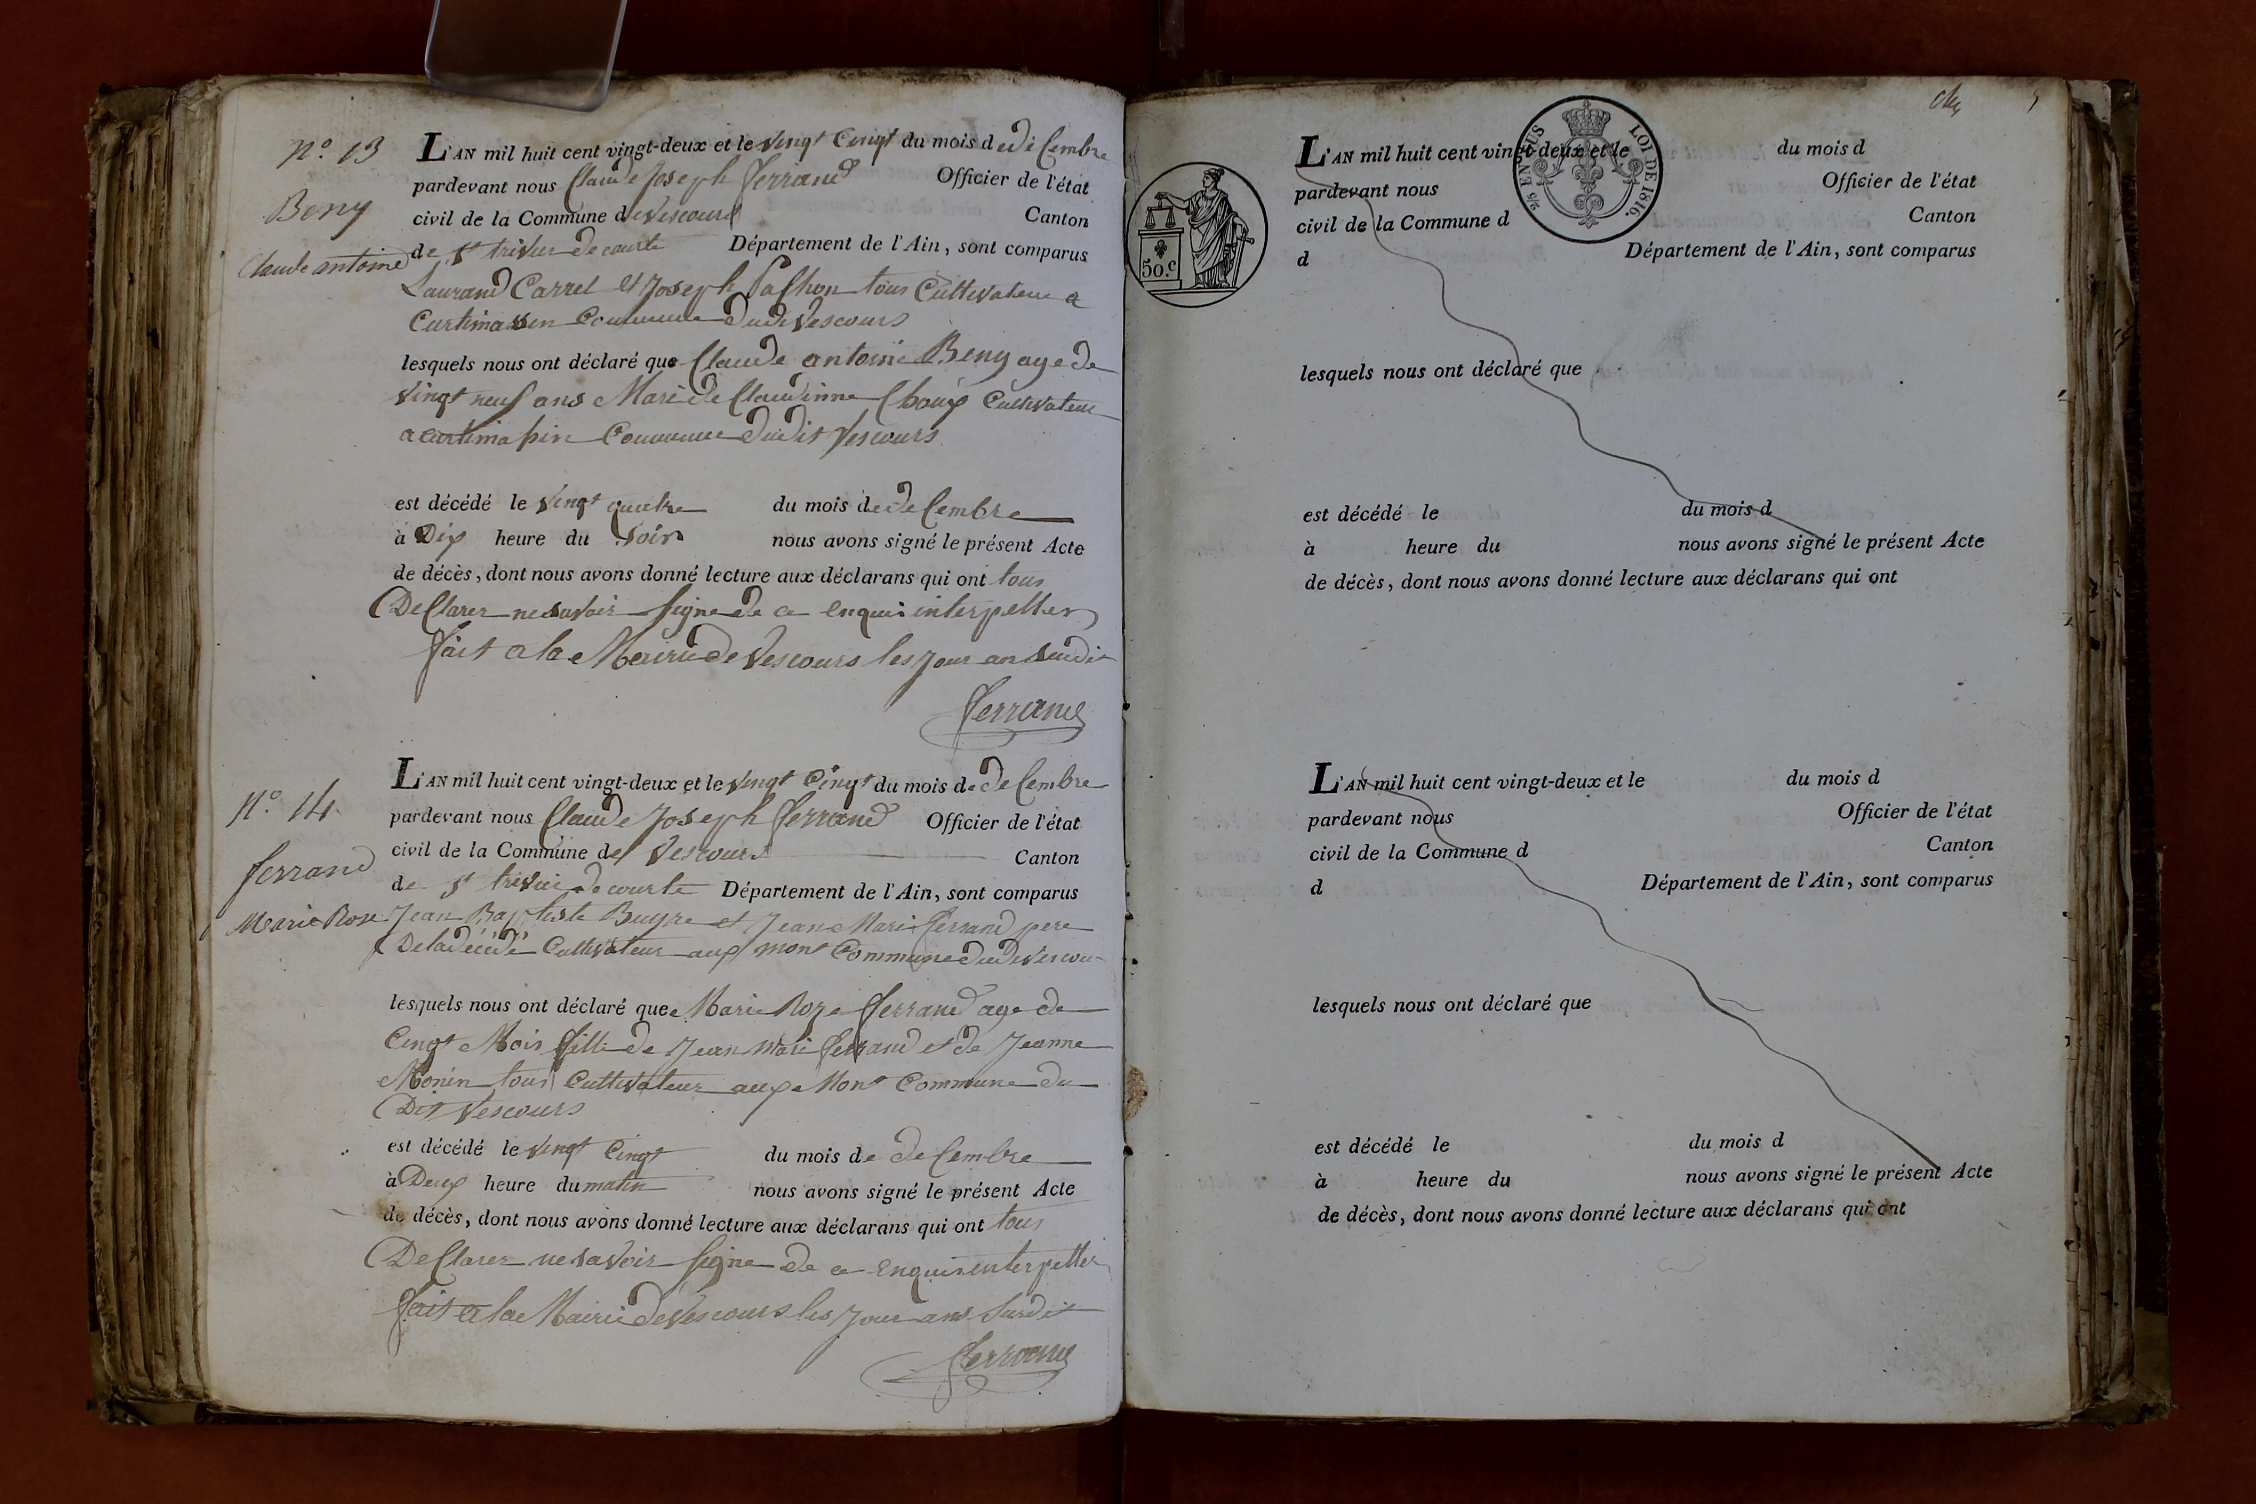 N.° 13
Beny
Claude antoine
L'AN mil huit cent vingt-deux et le vingt Cinqt du mois de deCembre
pardevant nous Claude Joseph Ferrand Officier de l'état
civil de la Commune de Vescours Canton
de St trivier de courte Département de l'Ain, sont comparus
Laurand Carrel et Joseph Pachon tous Cultivateur a
Commune dudi Vescours
lesquels nous ont déclaré que Claude antoine Beny age de
vingt neuf ans Mari de Claudinne Cultivateur
a Commune dudit Vescours
est décédé le vingt quatre du mois de deCembre
à Dix heure du soir nous avons signé le présent Acte
de décès, dont nous avons donné lecture aux déclarans qui ont tous
DeClarer ne savoir signe de ce enquis interpeller
fait a la Mairie de Vescours les jour an sudit
Ferrand
N.° 14
ferrand
Marie Rose
L'AN mil huit cent vingt-deux et le vingt Cinqt du mois de deCembre
pardevant nous Claude Joseph Ferrand Officier de l'état
civil de la Commune de Vescours Canton
de St trivier de courte Département de l'Ain, sont comparus
Jean Baptiste Buyre et Jean Marie Ferrand pere
De la décédé Cultivateur aux mont Commune dudi Vescou
lesquels nous ont déclaré que Marie Roze Ferrand age de
Cinqt Mois fille de Jean Mari Ferrand et de Jeanne
Monin tous Cultivateur aux Mont Commune du
Dit Vescours
est décédé le vingt Cinqt du mois de deCembre
à Deux heure du matin nous avons signé le présent Acte
de décès, dont nous avons donné lecture aux déclarans qui ont tous
DeClarer ne savoir signe de ce enquis interpeller
fait a la Mairie de Vescours les jour ans Susdit
Ferrand
5
2/5 EN SUS
LOI DE 1816.
50.c
L'AN mil huit cent vingt-deux et le du mois d
pardevant nous Officier de l'état
civil de la Commune d Canton
d Département de l'Ain, sont comparus
lesquels nous ont déclaré que
est décédé le du mois d
à heure du nous avons signé le présent Acte
de décès, dont nous avons donné lecture aux déclarans qui ont
L'AN mil huit cent vingt-deux et le du mois d
pardevant nous Officier de l'état
civil de la Commune d Canton
d Département de l'Ain, sont comparus
lesquels nous ont déclaré que
est décédé le du mois d
à heure du nous avons signé le présent Acte
de décès, dont nous avons donné lecture aux déclarans qui ont